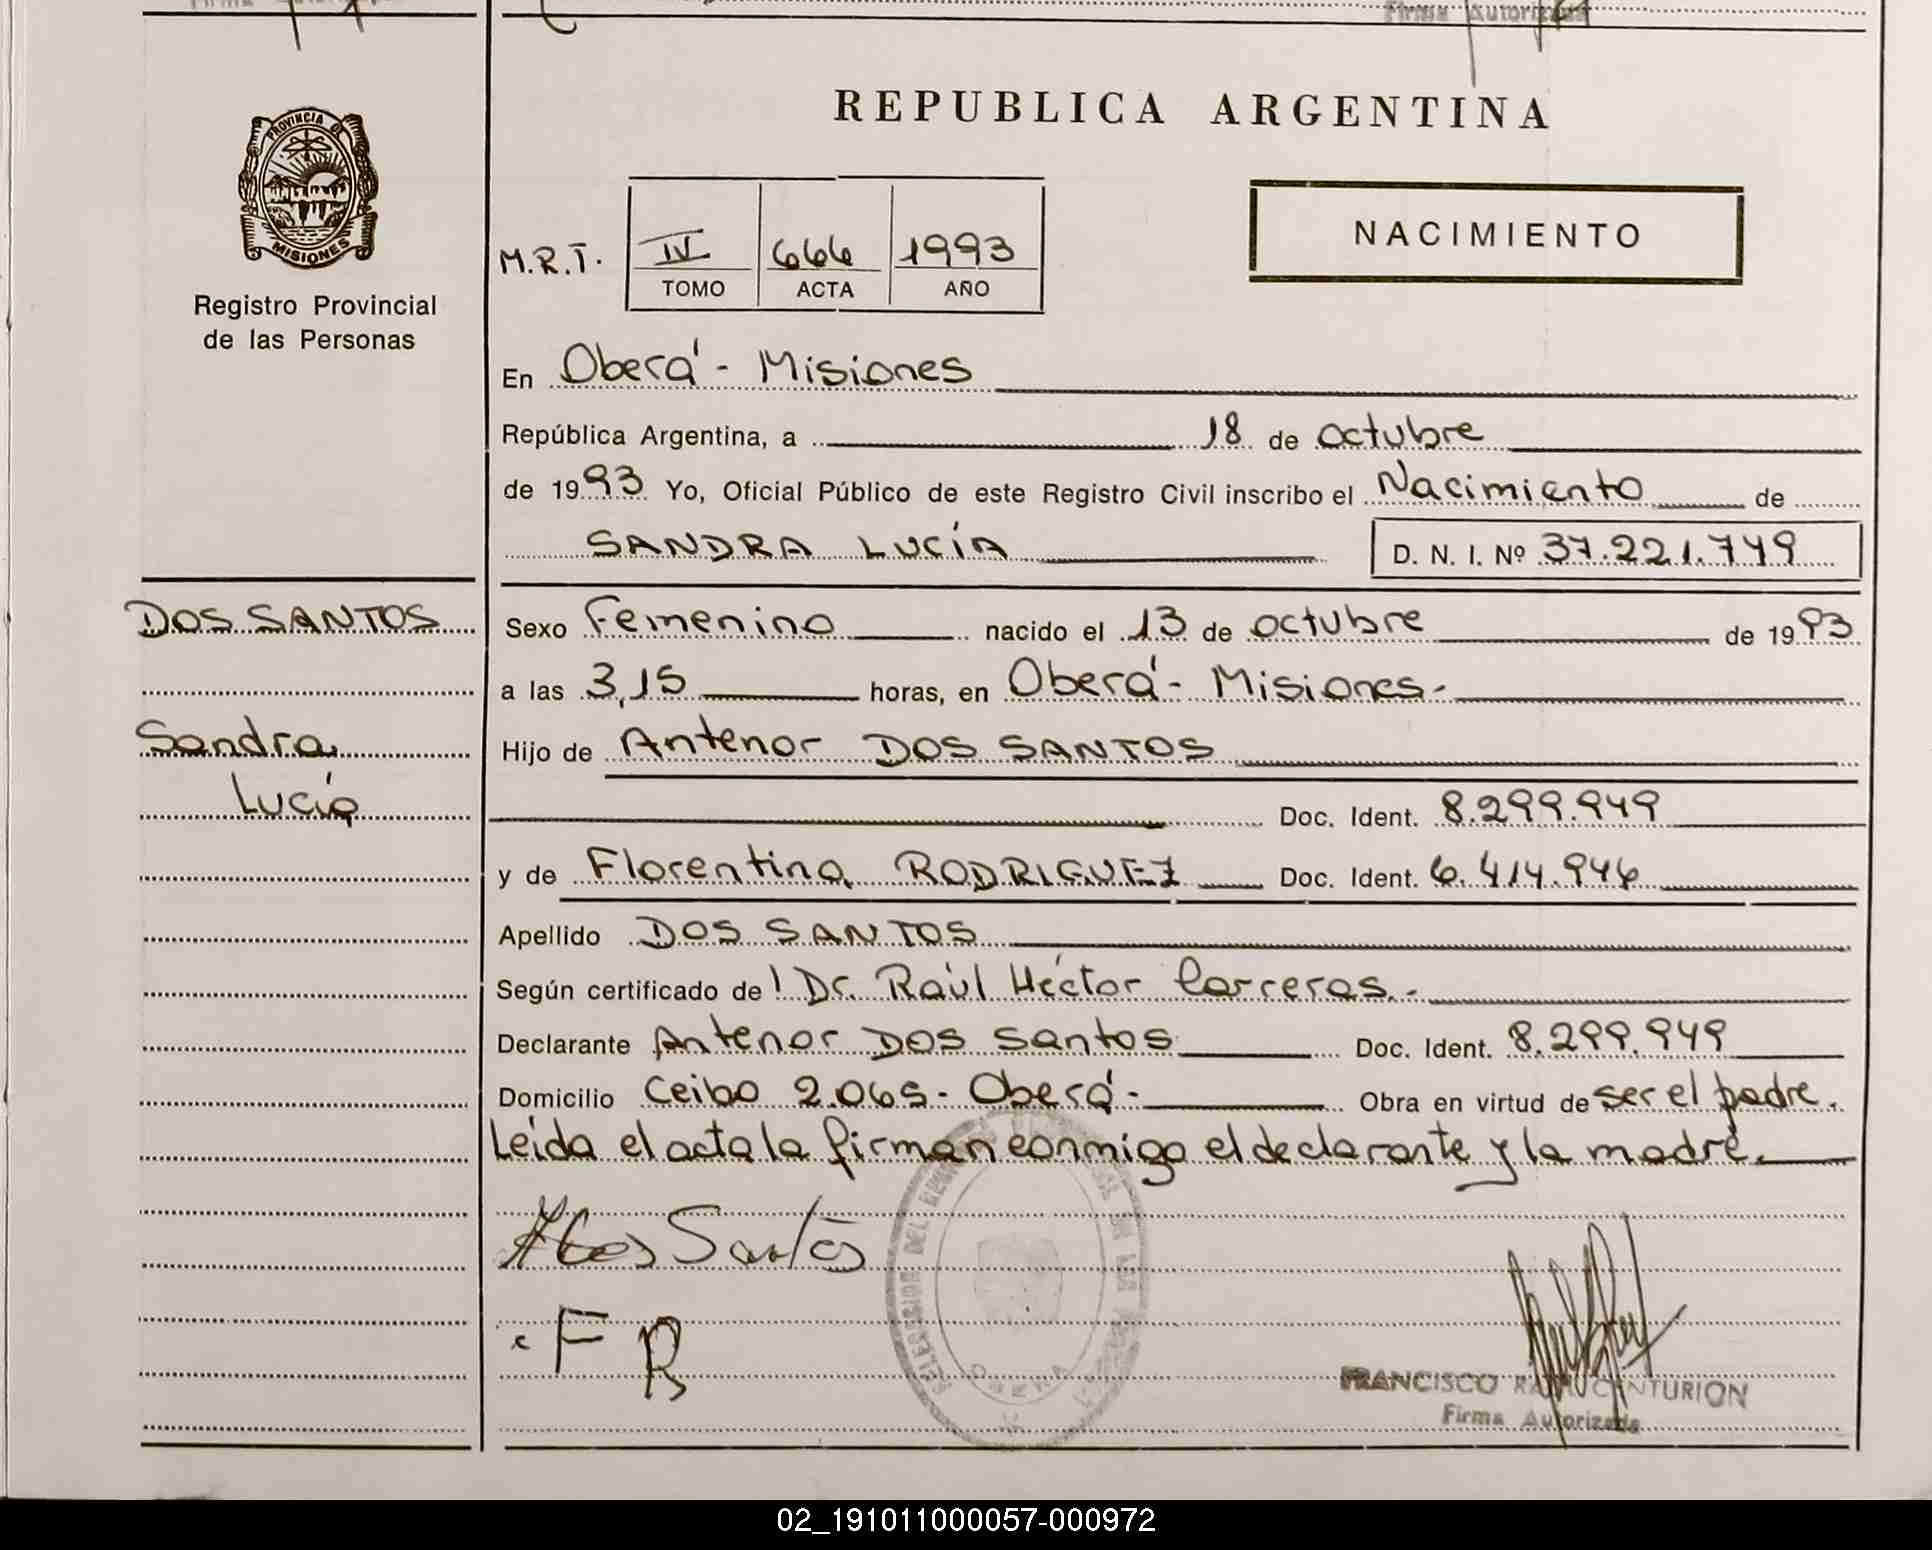 Firma Autorizada
PROVINCIA DE
MISIONES
Registro Provincial
de las Personas
REPUBLICA ARGENTINA
NACIMIENTO
M.R.T. IV 666 1993
TOMO ACTA AÑO
En Oberá - Misiones
República Argentina, a 18 de octubre
de 1993 Yo, Oficial Público de este Registro Civil inscribo el Nacimiento de
SANDRA LUCÍA D. N. I. Nº 37.221.749
DOS SANTOS
Sandra
Lucía
Sexo Femenino nacido el 13 de octubre de 1993
a las 3,15 horas, en Oberá - Misiones.-
Hijo de Antenor DOS SANTOS
Doc. Ident. 8.299.949
y de Florentina RODRIGUEZ Doc. Ident. 6.414.946
Apellido DOS SANTOS
Según certificado del Dr. Raúl Héctor Carreras.-
Declarante Antenor DOS Santos Doc. Ident. 8.299.949
Domicilio Ceibo 2.065 - Oberá - Obra en virtud de ser el padre.
Leída el acta la firman conmigo el declarante y la madre.
Dos Santos
F R
DEL
OBERA
FRANCISCO CENTURION
Firma Autorizada
02_191011000057-000972